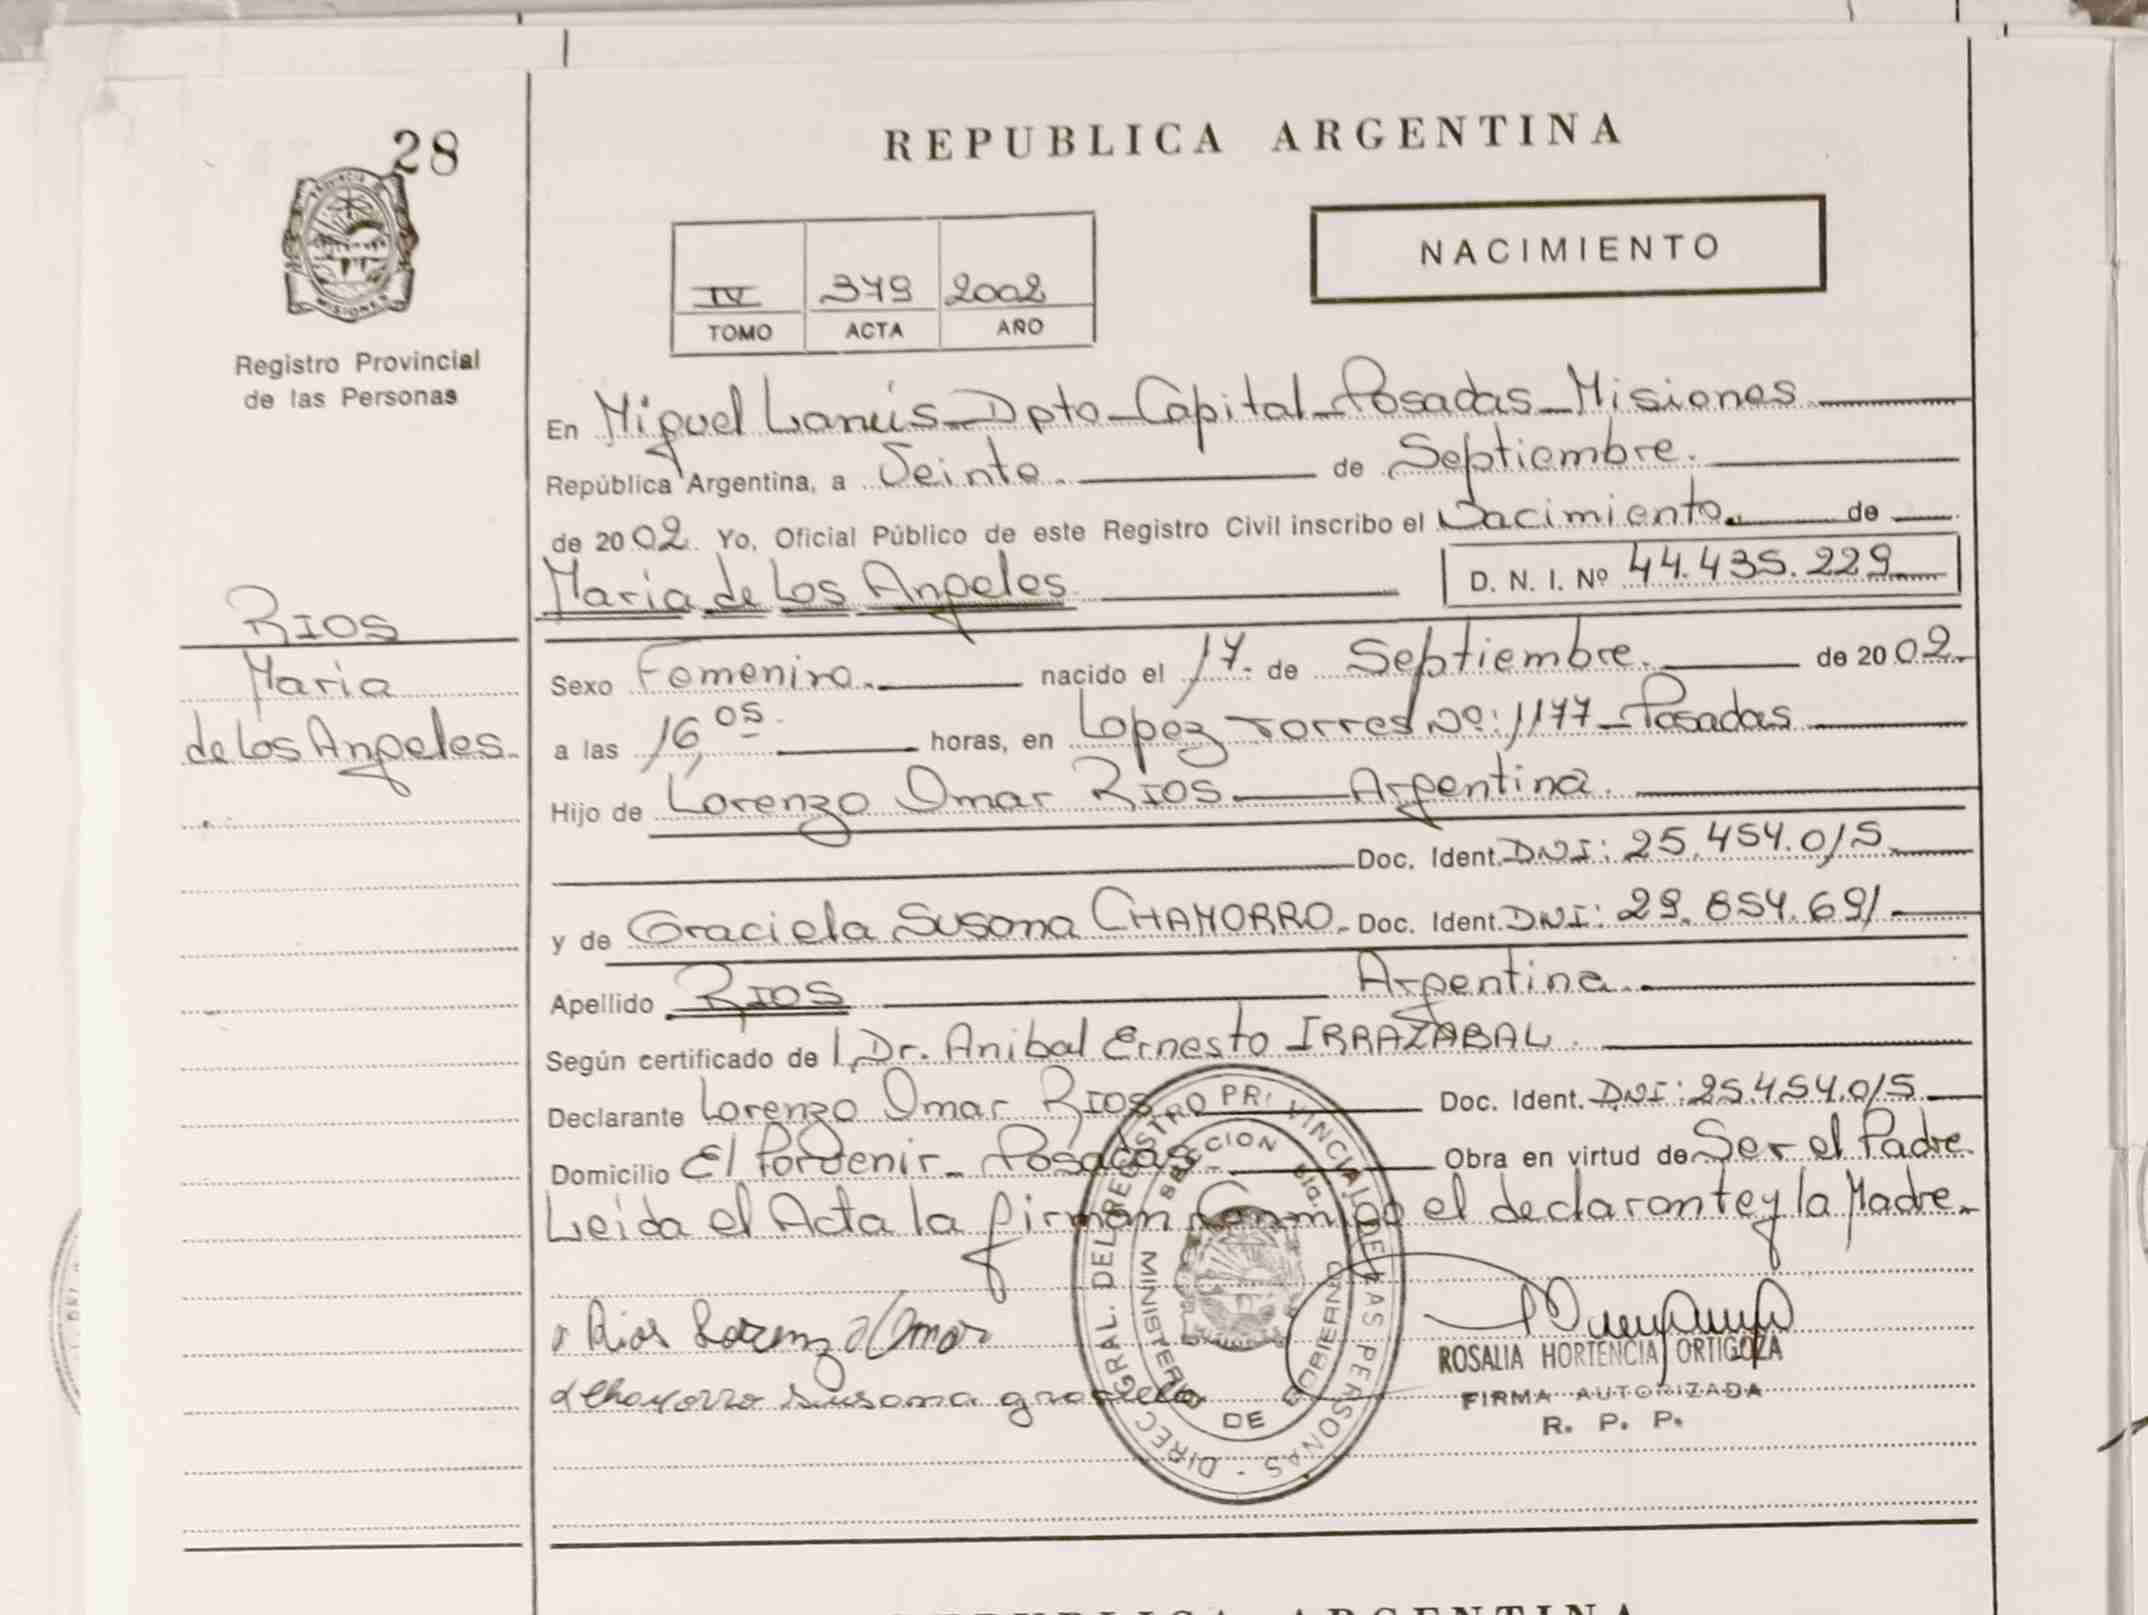 28
PROVINCIA DE
MISIONES
Registro Provincial
de las Personas
RIOS
Maria
de Los Angeles.
REPUBLICA ARGENTINA
NACIMIENTO
IV 379 2002
TOMO ACTA AÑO
En Miguel Lanús - Dpto - Capital - Posadas - Misiones
República Argentina, a Veinte. de Septiembre.
de 2002. Yo, Oficial Público de este Registro Civil inscribo el Nacimiento. de
Maria de Los Angeles D. N. I. Nº 44.435.229
Sexo Femenino. nacido el 17. de Septiembre. de 2002.
a las 16,05. horas, en Lopez Torres Nº: 1177 - Posadas
Hijo de Lorenzo Omar RIOS Argentina.
Doc. Ident. DNI: 25.454.015.
y de Graciela Susana CHAMORRO. Doc. Ident. DNI: 29.854.691
Apellido RIOS Argentina.
Según certificado de l, Dr. Anibal Ernesto IRRAZABAL.
Declarante Lorenzo Omar RIOS Doc. Ident. DNI: 25.454.015
Domicilio El Porvenir - Posadas - Obra en virtud de Ser el Padre.
Leida el Acta la firman conmigo el declarante y la Madre.
Rios Lorenzo Omar
Chamorro susana graciela
DIREC. GRAL. DEL REGISTRO PROVINCIAL DE LAS PERSONAS -
MINISTERIO DE GOBIERNO
SECCION
ROSALIA HORTENCIA ORTIGOZA
FIRMA AUTORIZADA
R. P. P.
REPUBLICA ARGENTINA